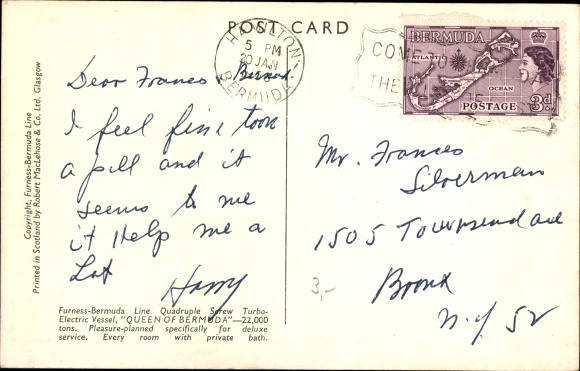 POST CARD
HAMILTON
5 PM
20 JAN
BERMUDA
COME
THE
BERMUDA
ATLANTIC
OCEAN
POSTAGE 3d.
Copyright, Furness-Bermuda Line
Printed in Scotland by Robert MacLehose & Co. Ltd. Glasgow
Dear Frances &
I feel fine toon
a pill and it
seems to me
it Help me a
Lot
Harry
Furness-Bermuda Line Quadruple Screw Turbo-
Electric Vessel, "QUEEN OF BERMUDA"—22,000
tons. Pleasure-planned specifically for deluxe
service. Every room with private bath.
Mr. Frances
Silverman
1505 Townsend ave
Bronx
N.Y 52
3,-